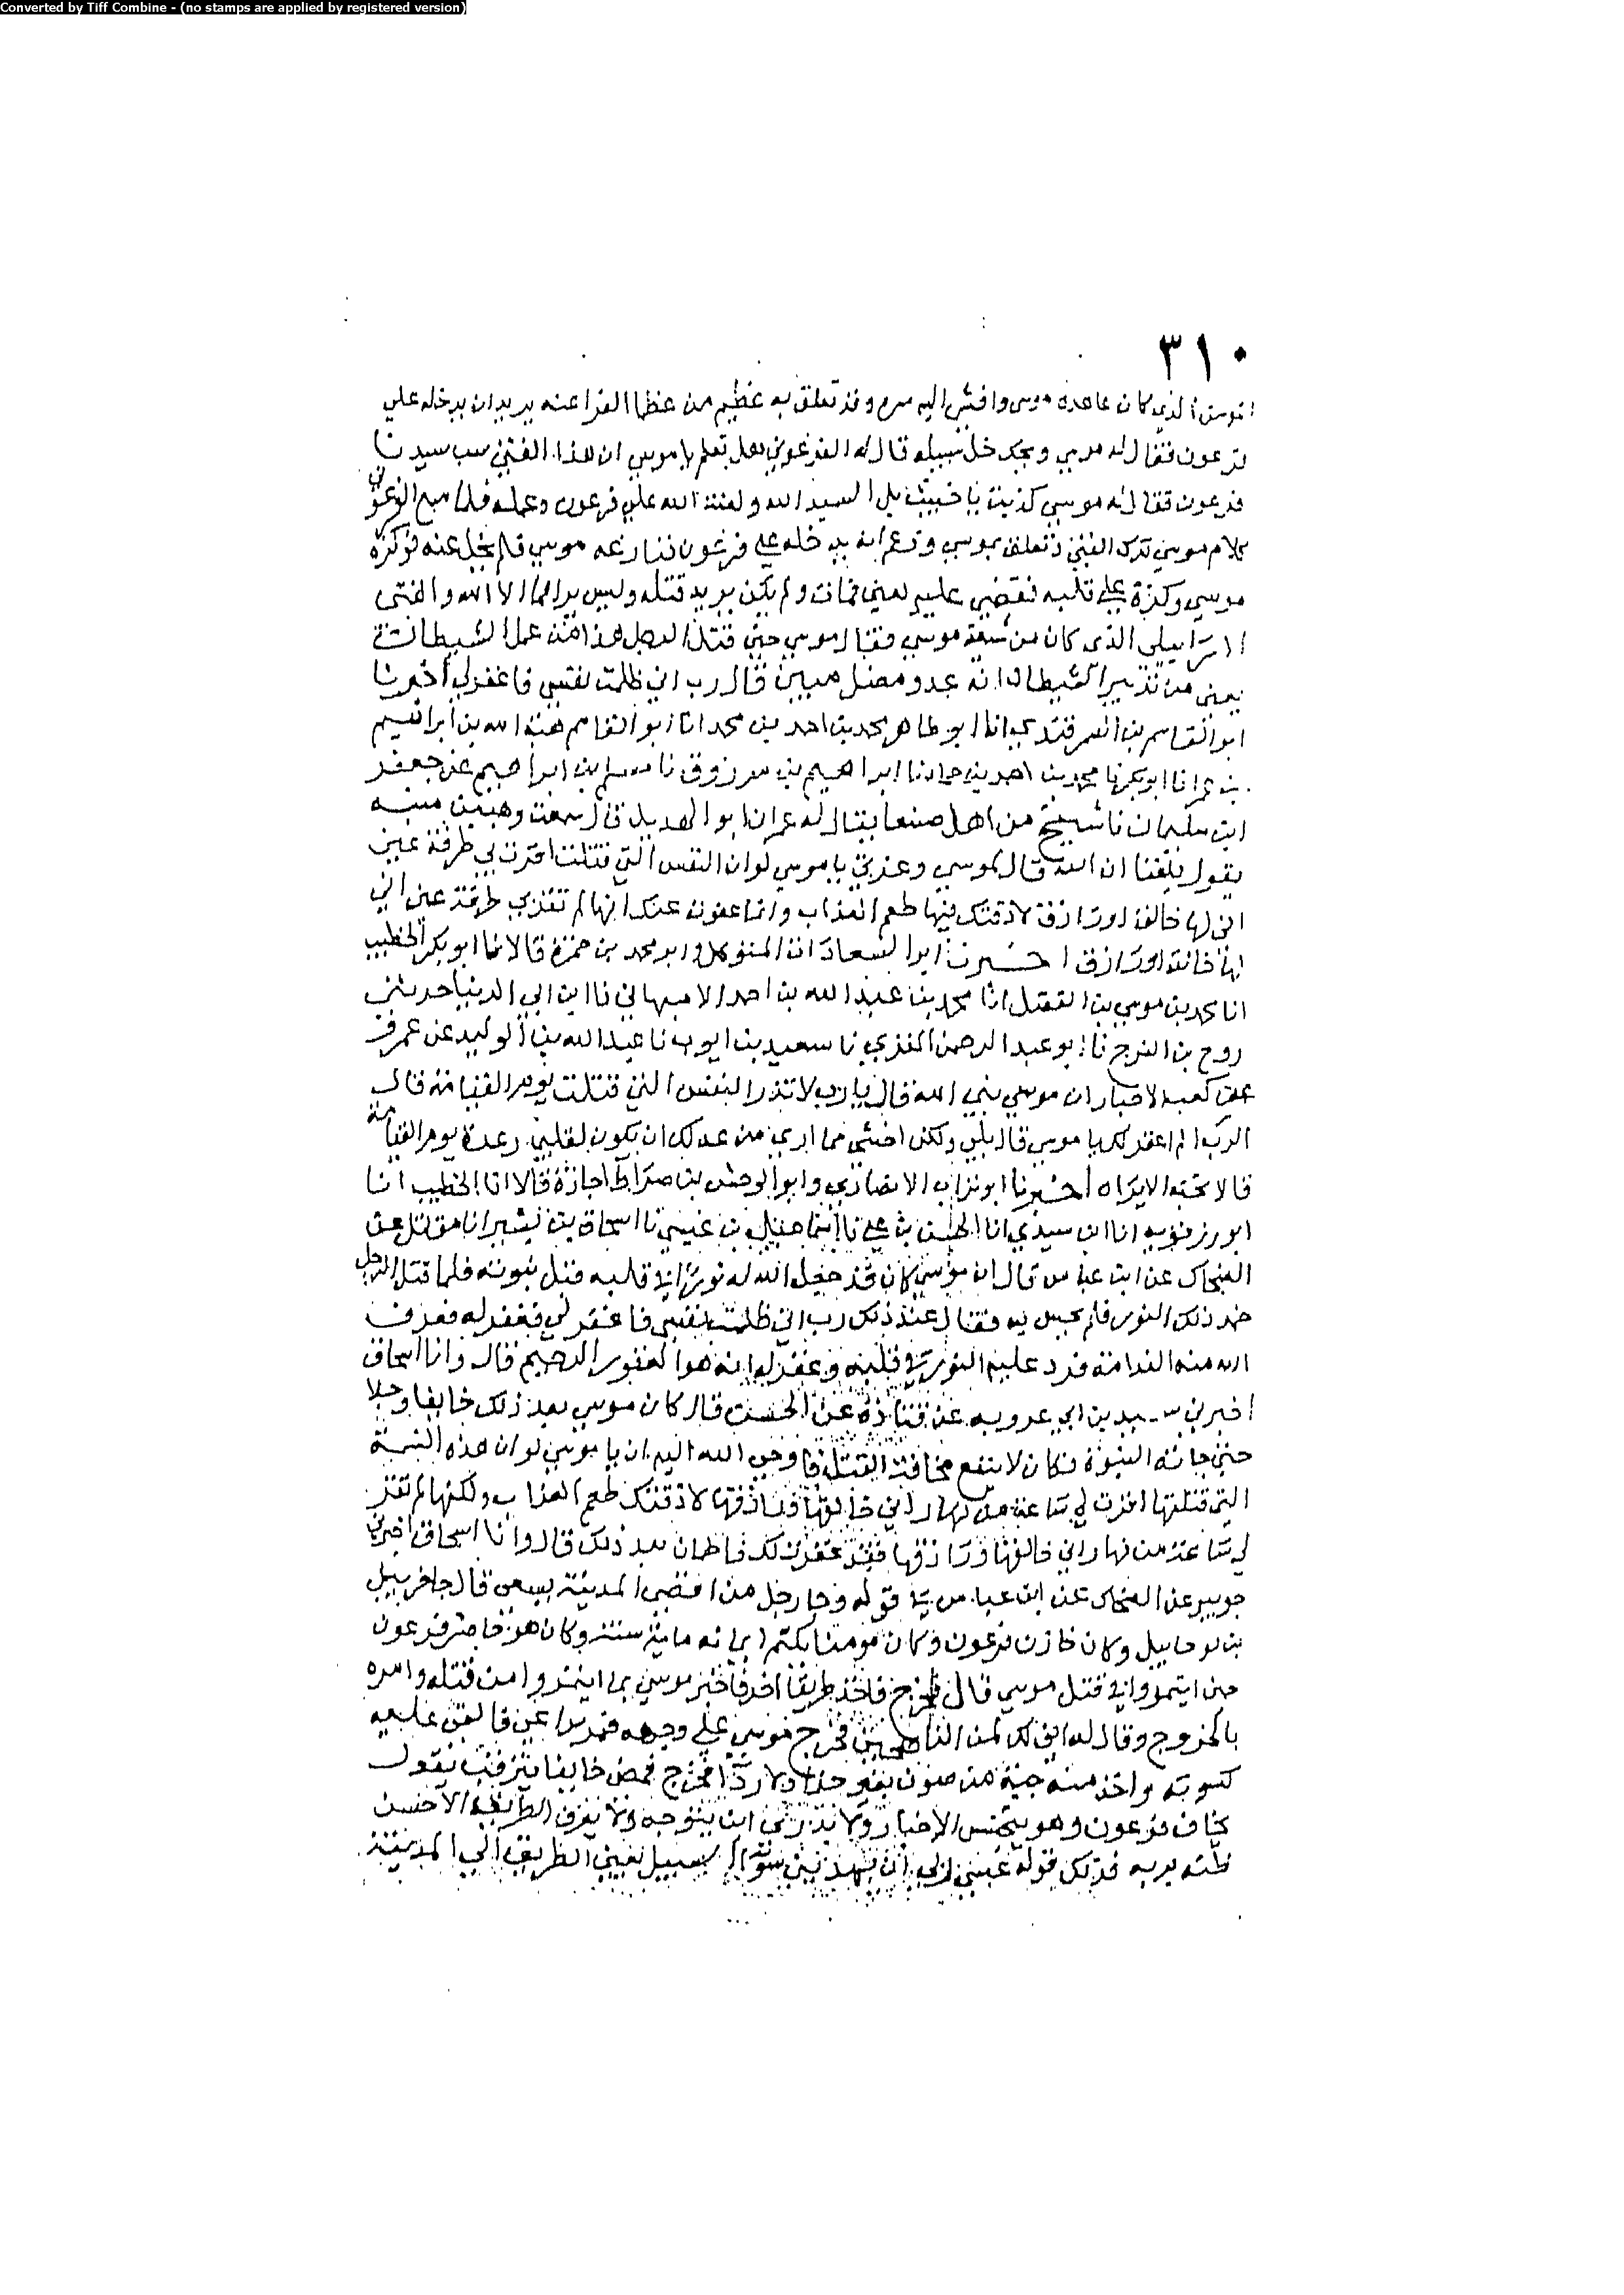 Converted by Tiff Combine - (no stamps are applied by registered version)
٣١٠
الذي كان عاهده موسى وافشى اليه سره وقد تعلق به عظيم من عظما الفراعنه يريد ان يدخله علي
فرعون فقال له موسي ويحك خل سبيله قال له الفرعوني هل تعلم يا موسي ان هذا الفتي سب سيدنا
فرعون فقال له موسي كذبت يا خبيث بل السيد الله ولعنة الله علي فرعون وعمله فلما سمع الفرعوني
كلام موسي ترك الفتي وتعلق بموسي وزعم انه يدخله علي فرعون فنازعه موسي فلم يخل عنه فوكزه
موسي وكزة علي قلبه فقضي عليه يعني فمات ولم يكن يريد قتله وليس يراهما الا الله والفتى
الاسراييلي الذي كان من شيعة موسي فقال موسي حين قتل الرجل هذا من عمل الشيطان
يعني من تزيين الشيطان انه عدو مضل مبين قال رب اني ظلمت نفسي فاغفر لي اخبرنا
ابو القاسم بن السمرقندي انا ابو طاهر محمد بن احمد بن محمد انا ابو القاسم هبة الله بن ابراهيم
بن عمر انا ابو بكر نا محمد بن احمد بن حماد نا ابراهيم بن مرزوق نا مسلم بن ابراهيم عن جعفر
ابن سليمان نا شيخ من اهل صنعا يقال له عمران ابو الهديل قال سمعت وهب بن منبه
يقول بلغنا ان الله قال لموسي وعزتي يا موسي لو ان النفس التي قتلت اقرت لي طرفة عين
اني لها خالق او رازق لاذقتك فيها طعم العذاب وانما عفوت عنك انها لم تقر لي طرفة عين اني
لها خالق او رازق اخبرنا ابو السعادات المتوكلي وابو محمد بن حمزة قالا نا ابو بكر الخطيب
انا محمد بن موسي بن الفضل انا محمد بن عبد الله بن احمد الاصبهاني نا ابن ابي الدنيا حدثني
روح بن الفرج نا ابو عبد الرحمن المقري نا سعيد بن ايوب نا عبد الله بن الوليد عن
عن كعب الاحبار ان موسي نبي الله قال يا رب لا تذر النفس التي قتلت يوم القيامة قال
الرب الم اغفر لك يا موسي قال بلي ولكن اخشي مما اري من عدلك ان يكون لقلبي رعدة يوم القيامة
اخبرنا ابو تراب الانصاري وابو الوحش بن قيراط اجازة قالا انا الخطيب انا
ابو رزقويه انا ابن سيدي انا الحسن بن علي نا اسماعيل بن عيسي نا اسحاق بن بشر انا مقاتل عن
الضحاك عن ابن عباس قال ان موسي كان قد جعل الله له نورا في قلبه قبل نبوته فلما قتل الرجل
خمد ذلك النور فلم يحس به فقال عند ذلك رب اني ظلمت نفسي فاغفر لي فغفر له فعرف
الله منه الندامة فرد عليه النور في قلبه وغفر له انه هو الغفور الرحيم قال وانا اسحاق
اخبرني سعيد بن ابي عروبه عن قتادة عن الحسن قال كان موسي بعد ذلك خايفا وجلا
حتي جاته النبوة فكان لا ينتفع مخافة القتل فاوحي الله اليه ان يا موسي لو ان هذه النسمة
التي قتلتها اقرت لي ساعة من نهار اني خالقها ورازقها لاذقتك طعم العذاب ولكنها لم تقر
لي ساعة من نهار اني خالقها ورازقها فقد غفرت لك فاطمان بعد ذلك قال وانا اسحاق اخبرني
جويبر عن الضحاك عن ابن عباس في قوله وجا رجل من اقصي المدينة يسعي قال جا خربيل
بن يوحابيل وكان خازن فرعون وكان مومنا يكتم ايمانه ماية سنة وكان هو حاضر فرعون
حين ايتمروا في قتل موسي قال فخرج فاخذ طريقا اخر فاخبر موسي بما ايتمروا من قتله وامره
بالخروج وقال له اني لك لمن الناصحين فخرج موسي علي وجهه فمر براعي فالقي عليه
كسوته واخذ منه جبة من صوف بغير حذا ولا ردا فخرج فمضي خايفا يترقب يقول
يخاف فرعون وهو يتجسس الاخبار ولا يدري اين يتوجه ولا يعرف الطريق الا حسن
ظنه بربه فذلك قوله عسي ربي ان يهديني سوا السبيل يعني الطريق الي المدينة